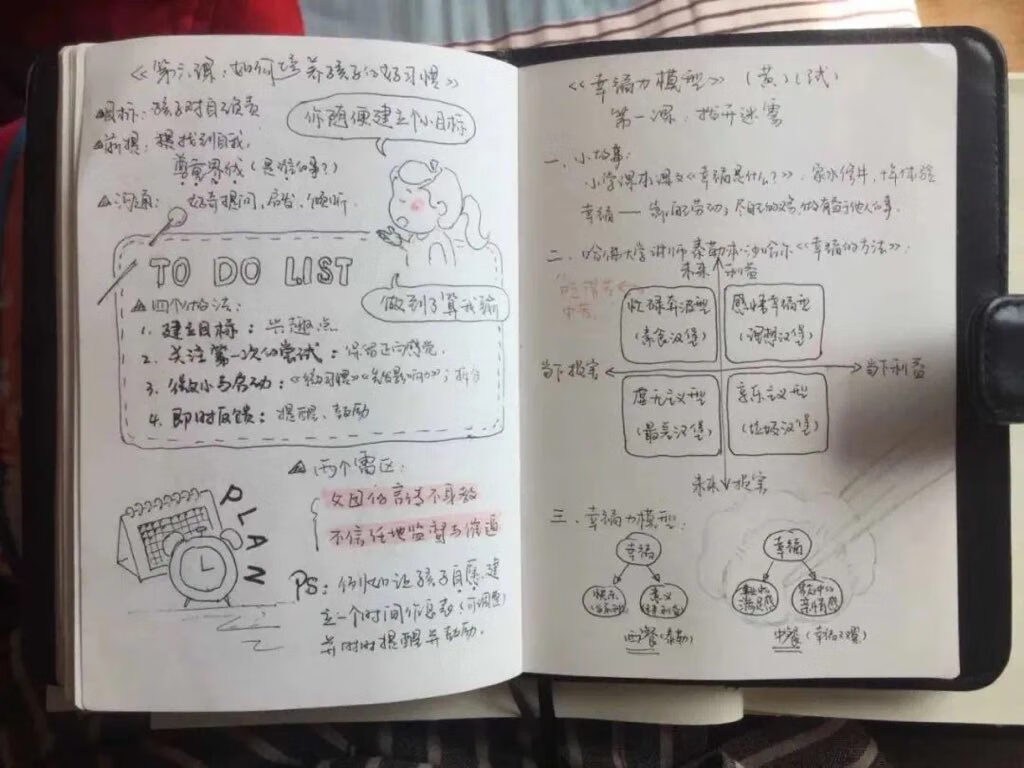 《第六课:如何培养孩子的好习惯》
△目标:孩子对自己负责
△前提:要找到自我,
尊重界线(是谁的事?)
△沟通:好奇提问,启发,倾听.
你随便建立个小目标
TO DO LIST
做到了算我输
△四个方法:
1. 建立目标:兴趣点
2. 关注第一次的尝试:保留正向感觉.
3. 微小马启动:《微习惯》
4. 即时反馈:提醒、鼓励
△两个雷区:
父母的言传不身教
不信任地监督与催逼
PLAN
PS:例如让孩子自愿建
立一个时间作息表(可调整)
并时时提醒并鼓励.
《幸福力模型》(黄)(试)
第一课:拨开迷雾
一、小故事:
小学课本课文《幸福是什么?》
幸福——靠自己劳动,尽自己的义务,做有益于他人的事.
二、哈佛大学讲师泰勒本·沙哈尔《幸福的方法》:
未来利益
忙碌奔波型
(素食汉堡)
感悟幸福型
(理想汉堡)
当下损害
当下利益
虚无主义型
(最差汉堡)
享乐主义型
(垃圾汉堡)
未来损害
三、幸福力模型:
幸福
快乐
意义
西餐(泰勒)
幸福
满足感
亲情感
中餐